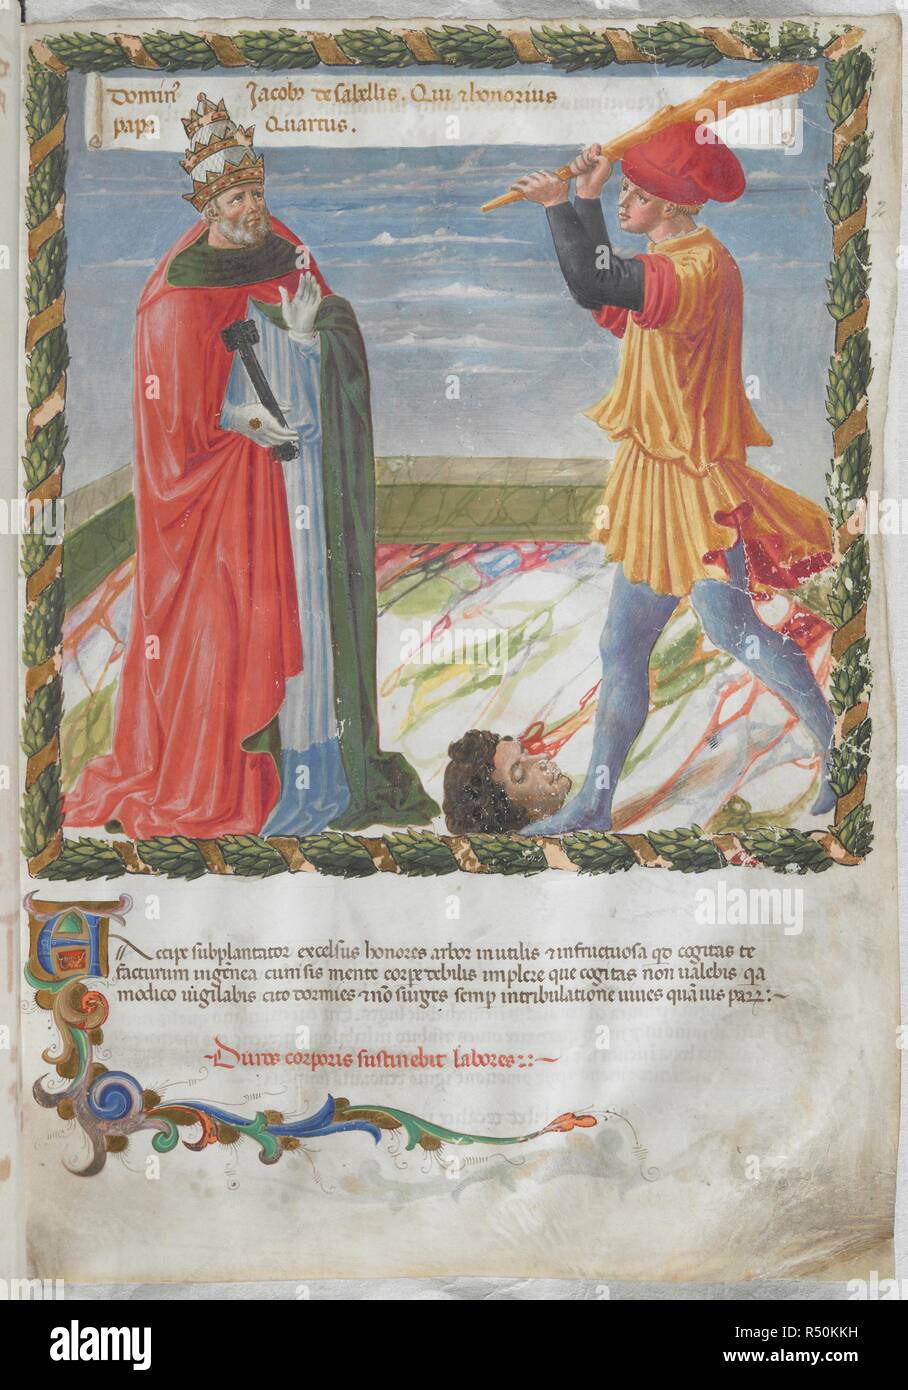 Domin' Jacob' de sabellis. Qui & honorius
papa Quartus.
Accipe subplantator excelsus honores arbor inutilis & infructuosa qd cogitas te
facturum ingenea cum sis mente corpe debilis implere que cogitas non ualebis qa
modico uigilabis cito dormies & no surges semp in tribulatione uiues
Duros corporis sustinebit labores
a
alamy
Image ID: R50KKH
www.alamy.com